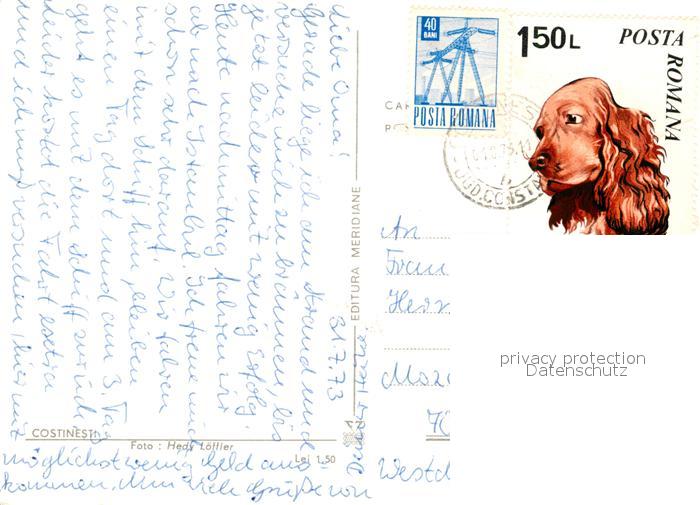 Liebe Oma!
Gerade liege ich am Strand und
versuche mich zu bräunen, bis
jetzt leider mit wenig Erfolg.
Heute nachmittag fahren wir
ab nach Istanbul. Ich freue mich
schon sehr darauf. Wir fahren
mit dem Schiff hin, bleiben
einen Tag dort und am 3. Tag
geht es mit dem Schiff zurück
Leider kostet die Fahrt extra
und ich muß versuchen, hier mit
möglichst wenig Geld aus-
kommen. Nun viele Grüße von
31.7.73
EDITURA MERIDIANE
COSTINEȘTI
Foto : Hedy Löffler
Lei 1,50
40
BANI
POSTA ROMANA
1.50L
POSTA
ROMANA
JUD.CONSTA
An
Frau
Westd
privacy protection
Datenschutz